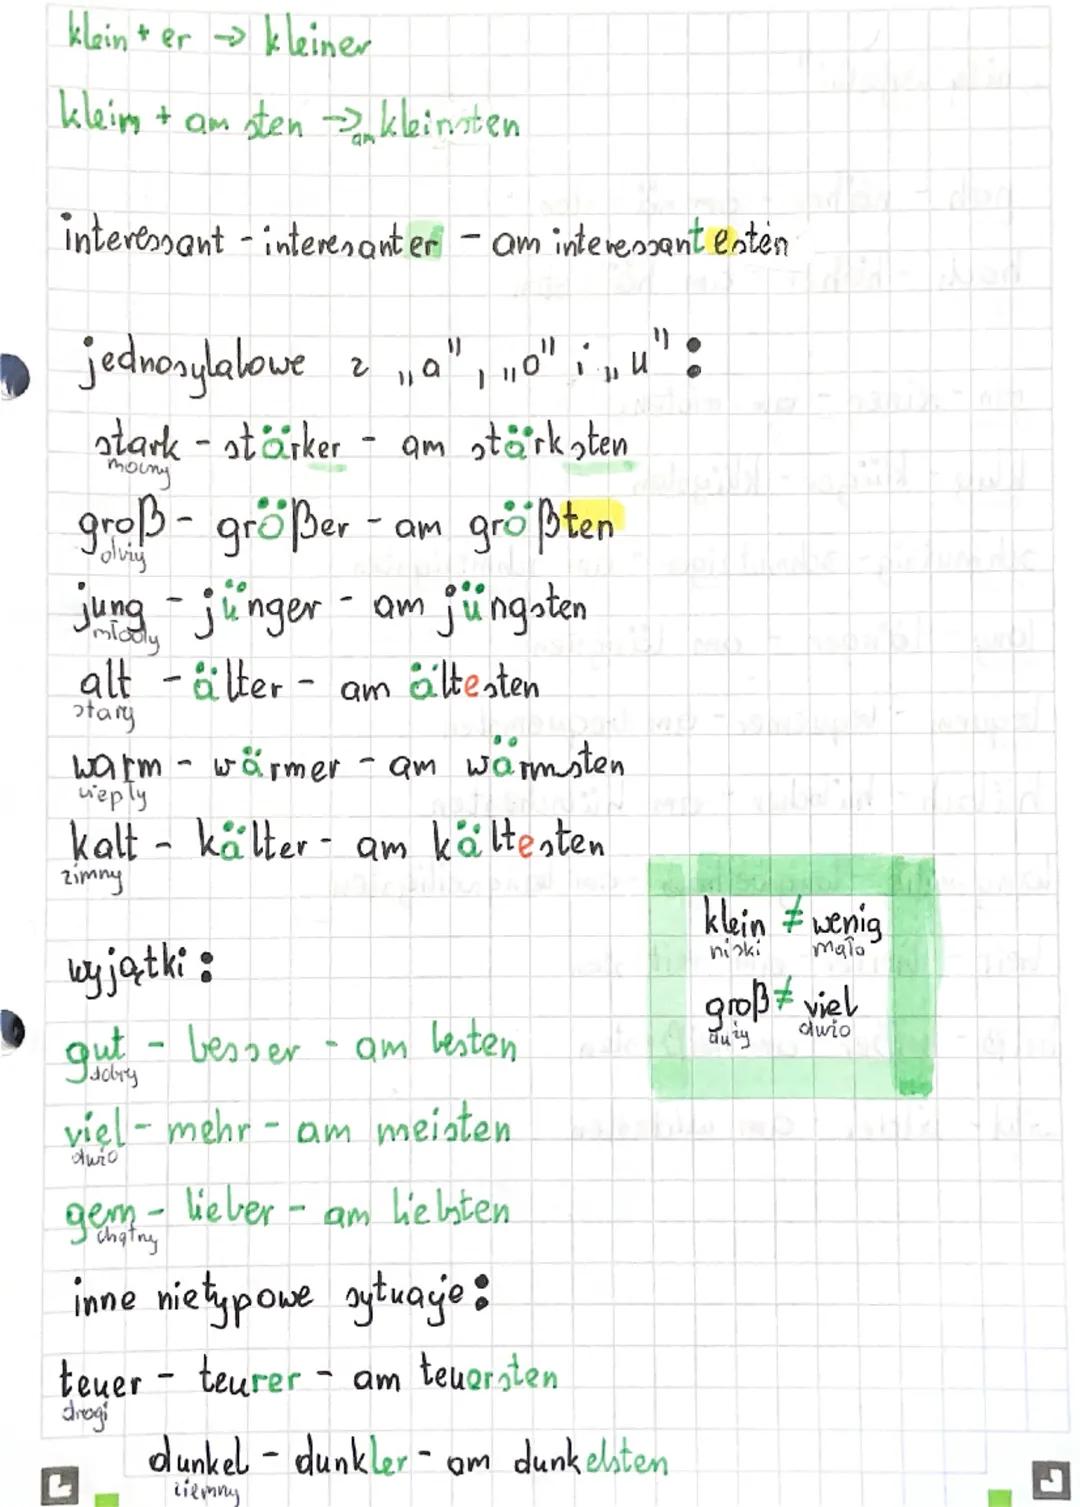 klein + er → kleiner
klein + am sten → am kleinsten
interessant - interesanter - am interessantesten
jednosylabowe z „a", „o" i „u":
stark - stärker - am stärksten
mocny
groß - größer - am größten
jung - jünger - am jüngsten
młody
alt - älter - am ältesten
stary
warm - wärmer - am wärmsten
ciepły
kalt - kälter - am kältesten
zimny
klein ≠ wenig
niski mało
groß ≠ viel
duży dużo
wyjątki:
gut - besser - am besten
dobry
viel - mehr - am meisten
dużo
gern - lieber - am liebsten
chętny
inne nietypowe sytuacje:
teuer - teurer - am teuersten
drogi
dunkel - dunkler - am dunkelsten
ciemny